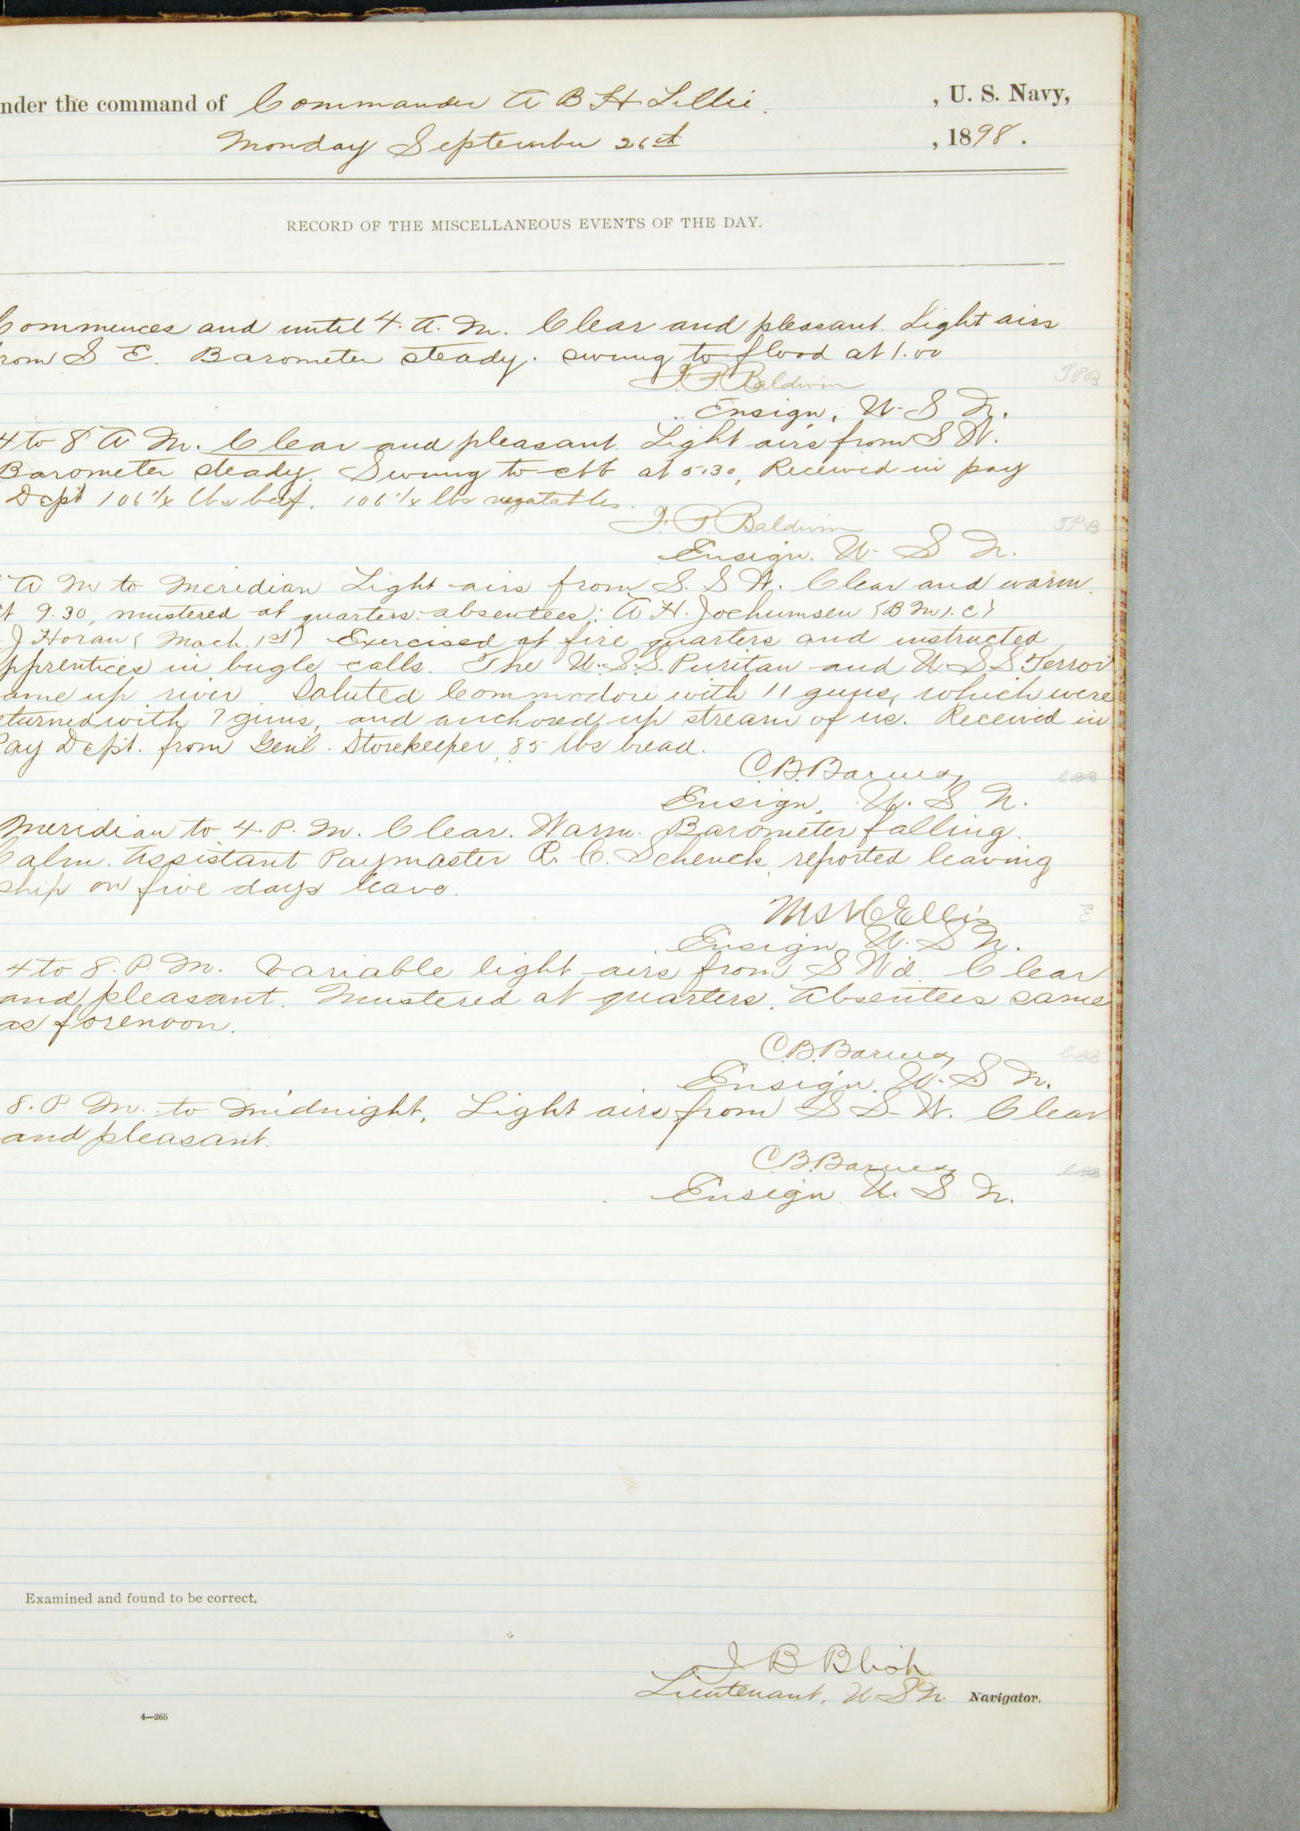 nder the command of Commander A B H Lillie. , U. S. Navy,
Monday September 26th , 1898.
RECORD OF THE MISCELLANEOUS EVENTS OF THE DAY.
Commences and until 4. A. M. Clear and pleasant. Light airs
rom S E. Barometer steady. swung to flood at 1.00
F. P. Baldwin
Ensign, U. S N.
4 to 8 A M. Clear and pleasant. Light airs from S W.
Barometer steady. Swung to ebb at 5.30, Received in pay
Dept 106 1/4 lbs beef. 106 1/4 lbs vegatables.
F. P. Baldwin
Ensign. U. S N.
A M to Meridian Light airs from S. S W. Clear and warm.
t 9.30, mustered at quarters absentees: A H. Jochumsen (B M 1. C)
J Horan (Mach 1st) Exercised at fire quarters and instructed
pprentices in bugle calls. The U. S. S. Puritan and U. S S. Terror
ame up river Saluted Commodore with 11 guns, which were
eturned with 7 guns, and anchored up stream of us. Received in
Pay Dept. from Genl. Storekeeper, 85 lbs bread.
C. B. Barnes
Ensign, U. S N.
Meridian to 4. P. M. Clear. Warm. Barometer falling.
Calm. Assistant Paymaster R. C. Schenck, reported leaving
ship on five days leave.
Ellis
Ensign U. S N.
4 to 8. P. M. Variable light airs from S W'd. Clear
and pleasant. Mustered at quarters. Absentees same
as forenoon.
C. B. Barnes
Ensign. U. S N.
8. P M. to midnight. Light airs from S S. W. Clear
and pleasant.
C. B. Barnes
Ensign U. S N.
Examined and found to be correct.
J B Blish
Lieutenant, U. S N Navigator.
4—265